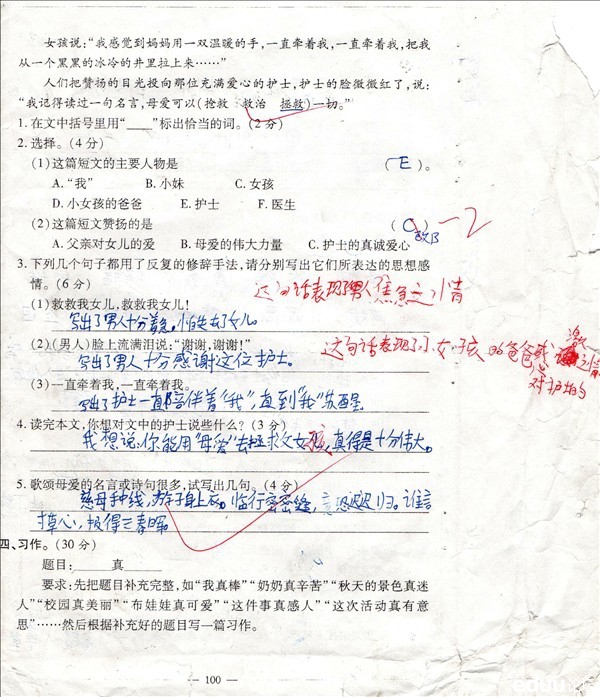 女孩说:“我感觉到妈妈用一双温暖的手,一直牵着我,一直牵着我,把我
从一个黑黑的冰冷的井里拉上来……”
人们把赞扬的目光投向那位充满爱心的护士,护士的脸微微红了,说:
“我记得读过一句名言,母爱可以(抢救 救治 拯救)一切。”
1.在文中括号里用“____”标出恰当的词。(2分)
2.选择。(4分)
(1)这篇短文的主要人物是 (E)。
A.“我” B.小妹 C.女孩
D.小女孩的爸爸 E.护士 F.医生
(2)这篇短文赞扬的是 (C) -2
改B
A.父亲对女儿的爱 B.母爱的伟大力量 C.护士的真诚爱心
3.下列几个句子都用了反复的修辞手法,请分别写出它们所表达的思想感
情。(6分)
这句话表现了男人焦急之情
(1)救救我女儿,救救我女儿!
写出了男人十分着急,小白失去了女儿。
(2)(男人)脸上流满泪说:“谢谢,谢谢!”
这句话表现了小女孩的爸爸 对护士的 激 之情
写出了男人十分感谢这位护士。
(3)一直牵着我,一直牵着我。
写出了护士一直陪伴着“我”,直到“我”苏醒
4.读完本文,你想对文中的护士说些什么?(3分)
我想说:你能用“母爱”去拯求女孩,真得是十分伟大。
5.歌颂母爱的名言或诗句很多,试写出几句。(4分)
慈母手中线,游子身上衣。临行密密缝,意恐迟迟归。谁言
寸草心,报得三春晖
四、习作。(30分)
题目:______真______
要求:先把题目补充完整,如“我真棒”“奶奶真辛苦”“秋天的景色真迷
人”“校园真美丽”“布娃娃真可爱”“这件事真感人”“这次活动真有意
思”……然后根据补充好的题目写一篇习作。
— 100 —